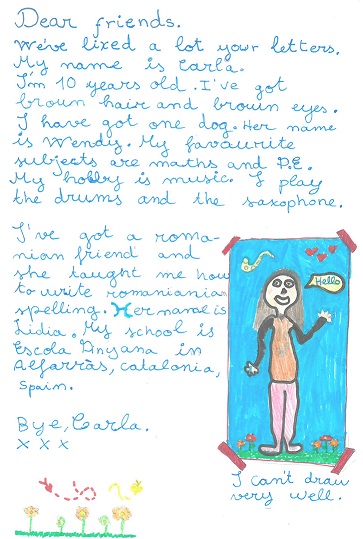 Dear friends.
We've lixed a lot your letters.
My name is Carla.
I'm 10 years old. I've got
broun hair and brouin eyes.
I have got one dog. Her name
is Wendy. My favaurite
subjects are maths and P.E.
My hobby is music. I play
the drums and the saxophone.
I've got a roma-
nian friend and
she taught me how
to write romaniania
spelling. Her name is
Lidia. My school is
Escola Pinyana in
Alfarràs, Catalonia,
Spain.
Hello
Bye, Carla.
x x x
I can't draw
very well.